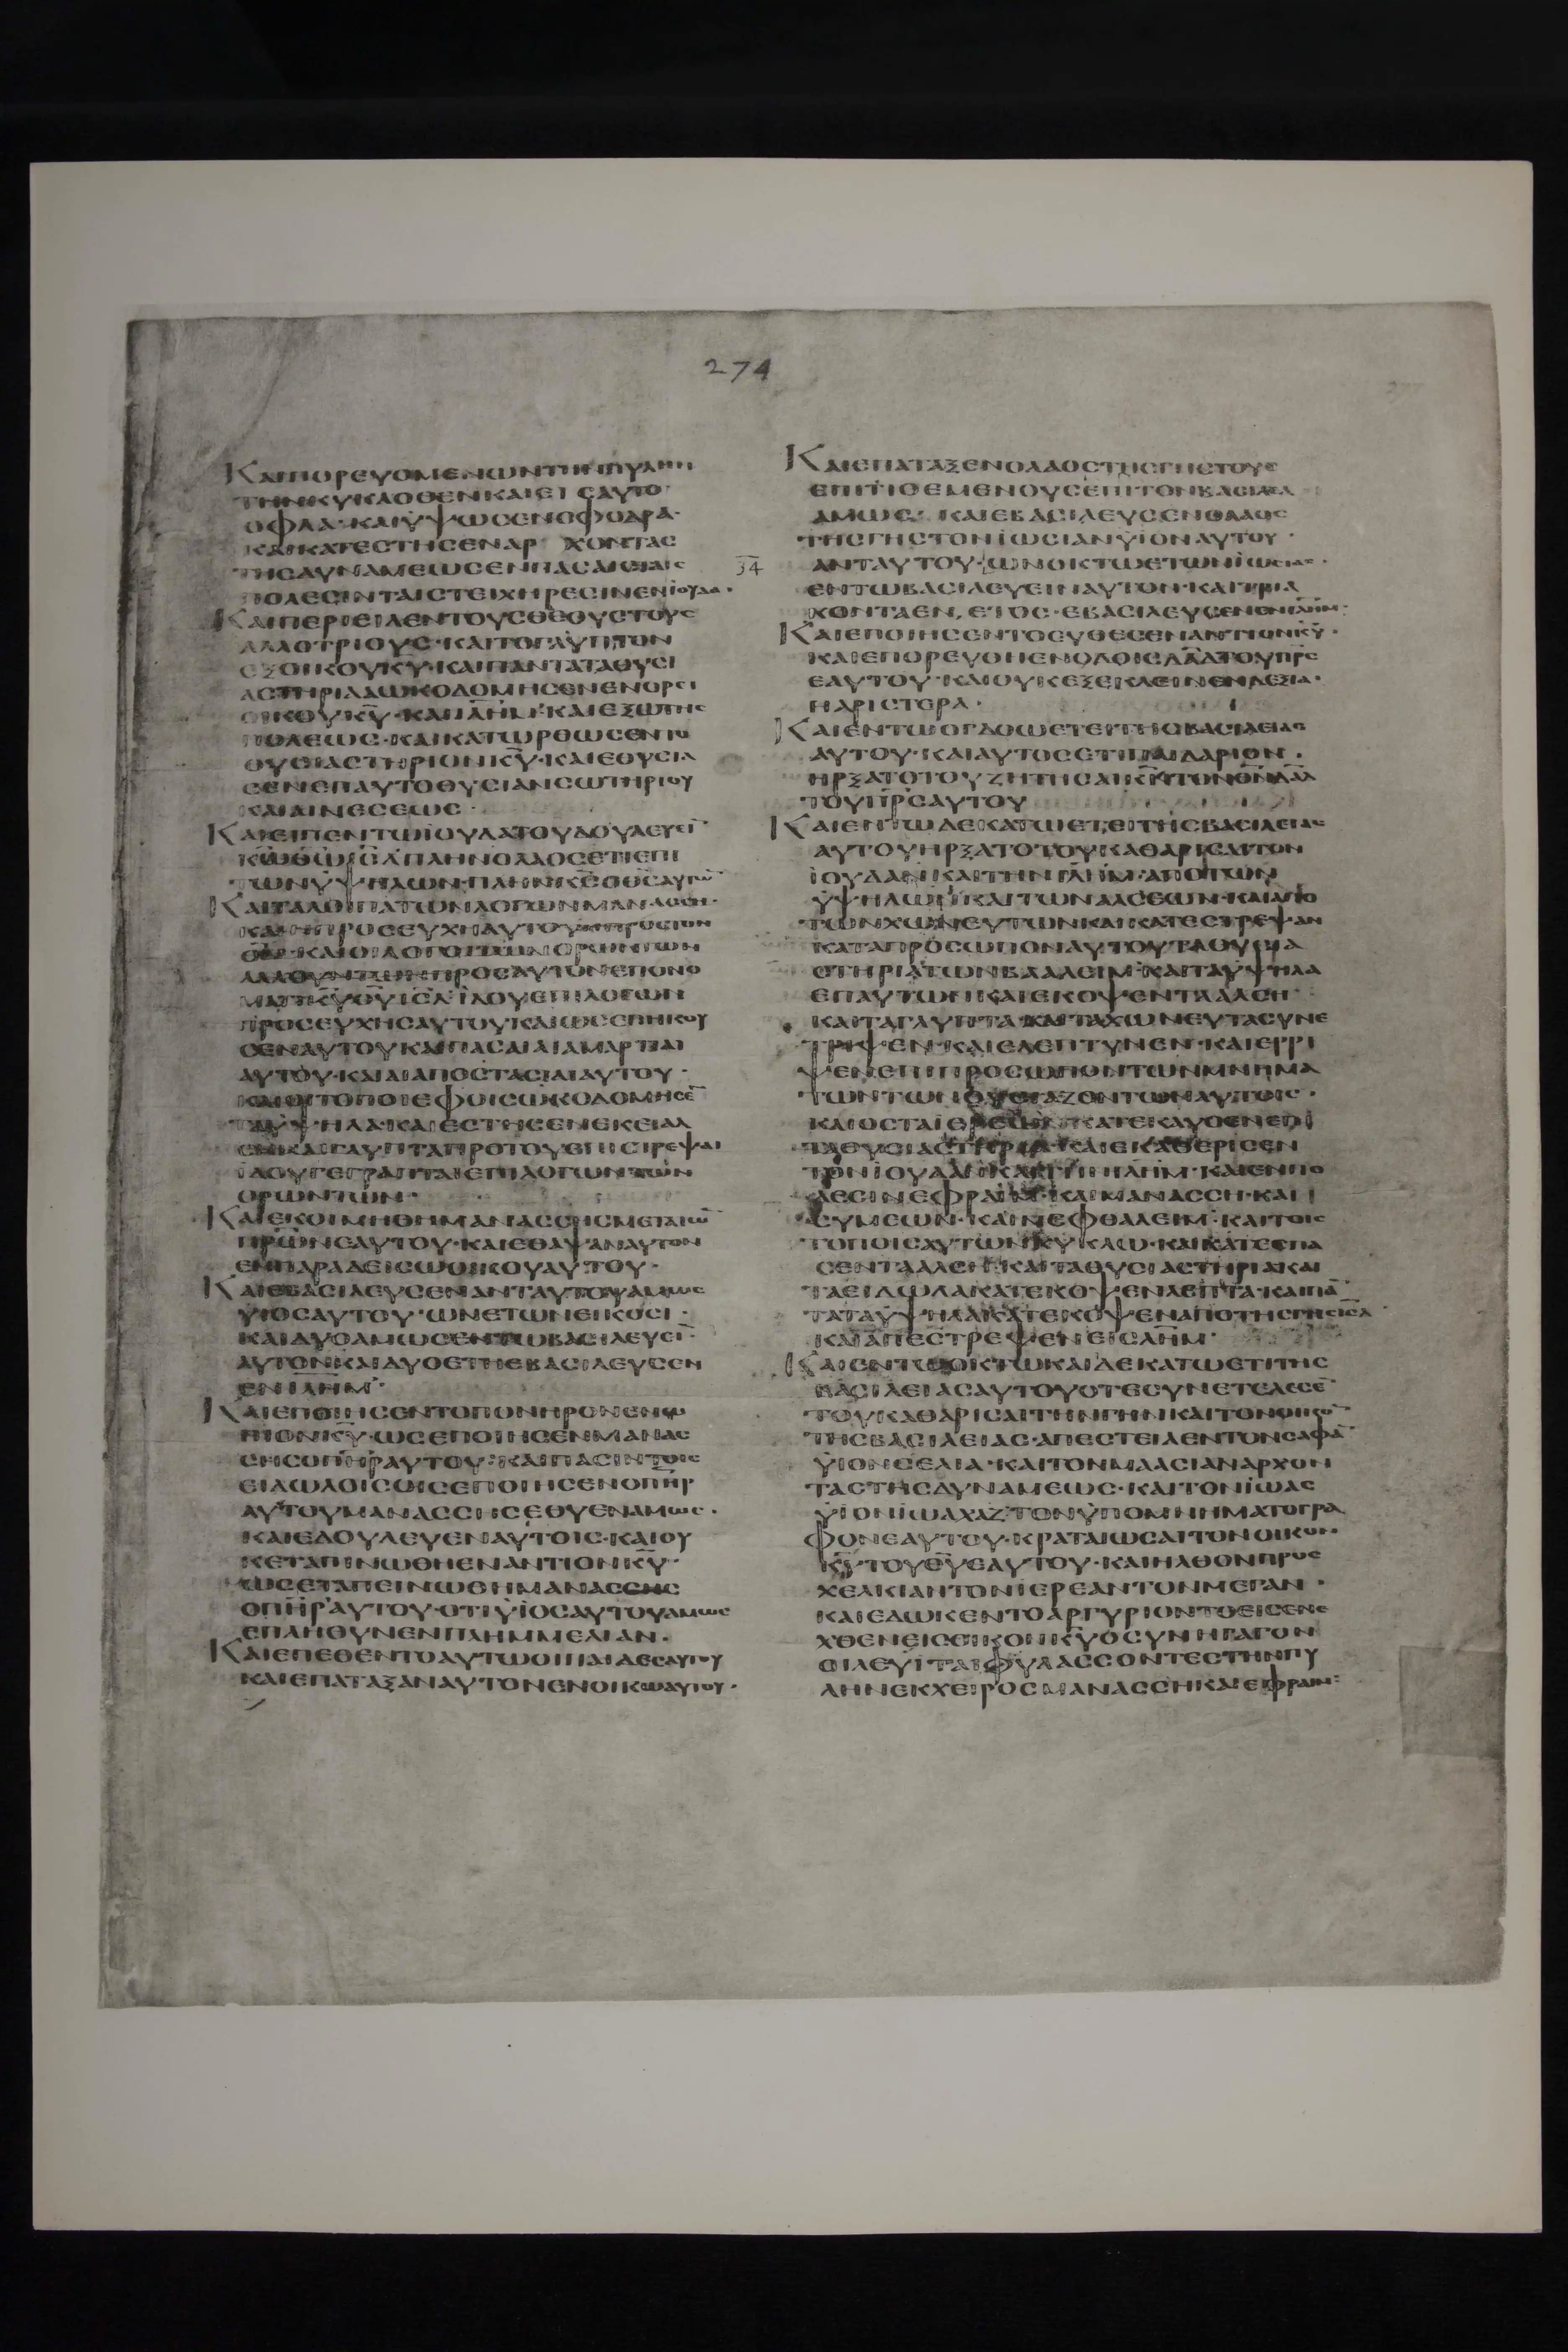 274
ΚΑΙΠΟΡΕΥΟΜΕΝΩΝΤΗΝΠΥΛΗΝ
ΤΗΝΚΥΚΛΟΘΕΝΚΑΙΕΙΣΑΥΤΟ
ΟΦΛΑ·ΚΑΙΫΨΩCΕΝCΦΟΔΡΑ·
ΚΑΙΚΑΤΕCΤΗCΕΝΑΡΧΟΝΤΑC
ΤΗCΔΥΝΑΜΕΩCΕΝΠΑCΑΙCΤΑΙC
ΠΟΛΕCΙΝΤΑΙCΤΕΙΧΗΡΕCΙΝΕΝΪΟΥΔΑ·
ΚΑΙΠΕΡΙΕΙΛΕΝΤΟΥCΘΕΟΥCΤΟΥC
ΑΛΛΟΤΡΙΟΥC·ΚΑΙΤΟΓΛΥΠΤΟΝ
ΕΞΟΙΚΟΥΚΥ·ΚΑΙΠΑΝΤΑΤΑΘΥCΙ
ΑCΤΗΡΙΑΑΩΚΟΔΟΜΗCΕΝΕΝΟΡΕΙ
ΟΙΚΟΥΚΥ·ΚΑΙΙΛΗΜ·ΚΑΙΕΞΩΤΗC
ΠΟΛΕΩC·ΚΑΙΚΑΤΩΡΘΩCΕΝΤΟ
ΘΥCΙΑCΤΗΡΙΟΝΚΥ·ΚΑΙΕΘΥCΙΑ
CΕΝΕΠΑΥΤΟΘΥCΙΑΝCΩΤΗΡΙΟΥ
ΚΑΙΑΙΝΕCΕΩC·
ΚΑΙΕΙΠΕΝΤΩΪΟΥΔΑΤΟΥΔΟΥΛΕΥΕΙ
ΚΩΘΩΙCΛ·ΠΛΗΝΟΛΑΟCΕΤΙΕΠΙ
ΤΩΝΫΨΗΛΩΝ·ΠΛΗΝΚCΟΘCΑΥΤΩΝ
ΚΑΙΤΑΛΟΙΠΑΤΩΝΛΟΓΩΝΜΑΝΑCCΗ·
ΚΑΙΗΠΡΟCΕΥΧΗΑΥΤΟΥΗΠΡΟCΤΟΝ
ΘΝ·ΚΑΙΟΙΛΟΓΟΙΤΩΝΟΡΩΝΤΩΝ
ΛΑΛΟΥΝΤΩΝΠΡΟCΑΥΤΟΝΕΠΟΝΟ
ΜΑΤΙΚΥΘΥΙCΛ·ΪΔΟΥΕΠΙΛΟΓΩΝ
ΠΡΟCΕΥΧΗCΑΥΤΟΥΚΑΙΩCΕΠΗΚΟΥ
CΕΝΑΥΤΟΥΚΑΙΠΑCΑΙΑΙΑΜΑΡΤΙΑΙ
ΑΥΤΟΥ·ΚΑΙΑΙΑΠΟCΤΑCΙΑΙΑΥΤΟΥ·
ΚΑΙΟΙΤΟΠΟΙΕΦΟΙCΩΚΟΔΟΜΗCΕ
ΤΑΫΨΗΛΑ·ΚΑΙΕCΤΗCΕΝΕΚΕΙΑΛ
CΗΚΑΙΓΛΥΠΤΑΠΡΟΤΟΥΕΠΙCΤΡΕΨΑΙ
ΪΔΟΥΓΕΓΡΑΠΤΑΙΕΠΙΛΟΓΩΝΤΩΝ
ΟΡΩΝΤΩΝ·
ΚΑΙΕΚΟΙΜΗΘΗΜΑΝΑCCΗCΜΕΤΑΤΩ
ΠΡΩΝΕΑΥΤΟΥ·ΚΑΙΕΘΑΨΑΝΑΥΤΟΝ
ΕΝΠΑΡΑΔΕΙCΩΟΙΚΟΥΑΥΤΟΥ·
ΚΑΙΕΒΑCΙΛΕΥCΕΝΑΝΤΑΥΤΟΥΑΜΩC
ΫΙΟCΑΥΤΟΥ·ΩΝΕΤΩΝΕΙΚΟCΙ·
ΚΑΙΔΥΟΑΜΩCΕΝΤΩΒΑCΙΛΕΥΕΙ·
ΑΥΤΟΝΚΑΙΔΥΟΕΤΗΕΒΑCΙΛΕΥCΕΝ
ΕΝΙΛΗΜ·
ΚΑΙΕΠΟΙΗCΕΝΤΟΠΟΝΗΡΟΝΕΝΩ
ΠΙΟΝΚΥ·ΩCΕΠΟΙΗCΕΝΜΑΝΑC
CΗCΟΠΗΡΑΥΤΟΥ·ΚΑΙΠΑCΙΝΤΟΙC
ΕΙΔΩΛΟΙCΟΙCΕΠΟΙΗCΕΝΟΠΗΡ
ΑΥΤΟΥΜΑΝΑCCΗCΕΘΥΕΝΑΜΩC·
ΚΑΙΕΔΟΥΛΕΥΕΝΑΥΤΟΙC·ΚΑΙΟΥ
ΚΕΤΑΠΙΝΩΘΗΕΝΑΝΤΙΟΝΚΥ·
ΩCΕΤΑΠΕΙΝΩΘΗΜΑΝΑCCΗC
ΟΠΗΡΑΥΤΟΥ·ΟΤΙΫΙΟCΑΥΤΟΥΑΜΩC
ΕΠΛΗΘΥΝΕΝΠΛΗΜΜΕΛΙΑΝ·
ΚΑΙΕΠΕΘΕΝΤΟΑΥΤΩΟΙΠΑΙΔΕCΑΥΤΟΥ
ΚΑΙΕΠΑΤΑΞΑΝΑΥΤΟΝΕΝΟΙΚΩΑΥΤΟΥ·
ΚΑΙΕΠΑΤΑΞΕΝΟΛΑΟCΤΗCΓΗCΤΟΥC
ΕΠΙΤΙΘΕΜΕΝΟΥCΕΠΙΤΟΝΒΑCΙΛΕΑ
ΑΜΩC·ΚΑΙΕΒΑCΙΛΕΥCΕΝΟΛΑΟC
ΤΗCΓΗCΤΟΝΪΩCΙΑΝΫΙΟΝΑΥΤΟΥ·
34 ΑΝΤΑΥΤΟΥ·ΩΝΟΚΤΩΕΤΩΝΪΩCΙΑC·
ΕΝΤΩΒΑCΙΛΕΥΕΙΝΑΥΤΟΝ·ΚΑΙΤΡΙΑ
ΚΟΝΤΑΕΝΕΤΟC·ΕΒΑCΙΛΕΥCΕΝΕΝΙΛΗΜ·
ΚΑΙΕΠΟΙΗCΕΝΤΟΕΥΘΕCΕΝΑΝΤΙΟΝΚΥ·
ΚΑΙΕΠΟΡΕΥΘΗΕΝΟΔΟΙCΔΑΔΤΟΥΠΡC
ΕΑΥΤΟΥ·ΚΑΙΟΥΚΕΞΕΚΛΕΙΝΕΝΔΕΞΙΑ·
ΗΑΡΙCΤΕΡΑ·
ΚΑΙΕΝΤΩΟΓΔΟΩΕΤΕΙΤΗCΒΑCΙΛΕΙΑC
ΑΥΤΟΥ·ΚΑΙΑΥΤΟCΕΤΙΠΑΙΔΑΡΙΟΝ·
ΗΡΞΑΤΟΤΟΥΖΗΤΗCΑΙΚΝΤΟΝΘΝΔΑΔ
ΤΟΥΠΡCΑΥΤΟΥ
ΚΑΙΕΝΤΩΔΕΚΑΤΩΕΤΕΙΤΗCΒΑCΙΛΕΙΑC
ΑΥΤΟΥΗΡΞΑΤΟΤΟΥΚΑΘΑΡΙCΑΙΤΟΝ
ΪΟΥΔΑΝΚΑΙΤΗΝΙΛΗΜ·ΑΠΟΤΩΝ
ΫΨΗΛΩΝΚΑΙΤΩΝΑΛCΕΩΝ·ΚΑΙΑΠΟ
ΤΩΝΧΩΝΕΥΤΩΝΚΑΙΚΑΤΕCΤΡΕΨΑΝ
ΚΑΤΑΠΡΟCΩΠΟΝΑΥΤΟΥΤΑΘΥCΙΑ
CΤΗΡΙΑΤΩΝΒΑΑΛΕΙΜ·ΚΑΙΤΑΫΨΗΛΑ
ΕΠΑΥΤΩΝΚΑΙΕΚΟΨΕΝΤΑΑΛCΗ
ΚΑΙΤΑΓΛΥΠΤΑ·ΚΑΙΤΑΧΩΝΕΥΤΑCΥΝΕ
ΤΡΙΨΕΝ·ΚΑΙΕΛΕΠΤΥΝΕΝ·ΚΑΙΕΡΡΙ
ΨΕΝΕΠΙΠΡΟCΩΠΟΝΤΩΝΜΝΗΜΑ
ΤΩΝΤΩΝΘΥCΙΑΖΟΝΤΩΝΑΥΤΟΙC·
ΚΑΙΟCΤΑΙΕΡΕΩΝΚΑΤΕΚΑΥCΕΝΕΠΙ
ΤΑΘΥCΙΑCΤΗΡΙΑ·ΚΑΙΕΚΑΘΕΡΙCΕΝ
ΤΟΝΪΟΥΔΑΝΚΑΙΤΗΝΙΛΗΜ·ΚΑΙΕΝΠΟ
ΛΕCΙΝΕΦΡΑΙΜ·ΚΑΙΜΑΝΑCCΗ·ΚΑΙ
CΥΜΕΩΝ·ΚΑΙΝΕΦΘΑΛΕΙΜ·ΚΑΙΤΟΙC
ΤΟΠΟΙCΑΥΤΩΝΚΥΚΛΩ·ΚΑΙΚΑΤΕCΠΑ
CΕΝΤΑΑΛCΗ·ΚΑΙΤΑΘΥCΙΑCΤΗΡΙΑΚΑΙ
ΤΑΕΙΔΩΛΑΚΑΤΕΚΟΨΕΝΛΕΠΤΑ·ΚΑΙΠΑ
ΤΑΤΑΫΨΗΛΑΚΑΤΕΚΟΨΕΝΑΠΟΤΗCΓΗCΙCΛ
ΚΑΙΑΠΕCΤΡΕΨΕΝΕΙCΙΛΗΜ·
ΚΑΙΕΝΤΩΟΚΤΩΚΑΙΔΕΚΑΤΩΕΤΙΤΗC
ΒΑCΙΛΕΙΑCΑΥΤΟΥΟΤΕCΥΝΕΤΕΛΕCΕ
ΤΟΥΚΑΘΑΡΙCΑΙΤΗΝΓΗΝΚΑΙΤΟΝΟΙΚΟ
ΤΗCΒΑCΙΛΕΙΑC·ΑΠΕCΤΕΙΛΕΝΤΟΝCΑΦΑ
ΫΙΟΝCΕΛΙΑ·ΚΑΙΤΟΝΜΑΑCΙΑΝΑΡΧΟΝ
ΤΑCΤΗCΔΥΝΑΜΕΩC·ΚΑΙΤΟΝΪΩΑC
ΫΙΟΝΪΩΑΧΑΖ·ΤΟΝΫΠΟΜΝΗΜΑΤΟΓΡΑ
ΦΟΝΕΑΥΤΟΥ·ΚΡΑΤΑΙΩCΑΙΤΟΝΟΙΚΟΝ
ΚΥΤΟΥΘΥΕΑΥΤΟΥ·ΚΑΙΗΛΘΟΝΠΡΟC
ΧΕΛΚΙΑΝΤΟΝΙΕΡΕΑΝΤΟΝΜΕΓΑΝ·
ΚΑΙΕΔΩΚΕΝΤΟΑΡΓΥΡΙΟΝΤΟΕΙCΕΝΕ
ΧΘΕΝΕΙCΟΙΚΟΝΚΥΟCΥΝΗΓΑΓΟΝ
ΟΙΛΕΥΙΤΑΙΦΥΛΑCCΟΝΤΕCΤΗΝΠΥ
ΛΗΝΕΚΧΕΙΡΟCΜΑΝΑCCΗΚΑΙΕΦΡΑΙΜ·